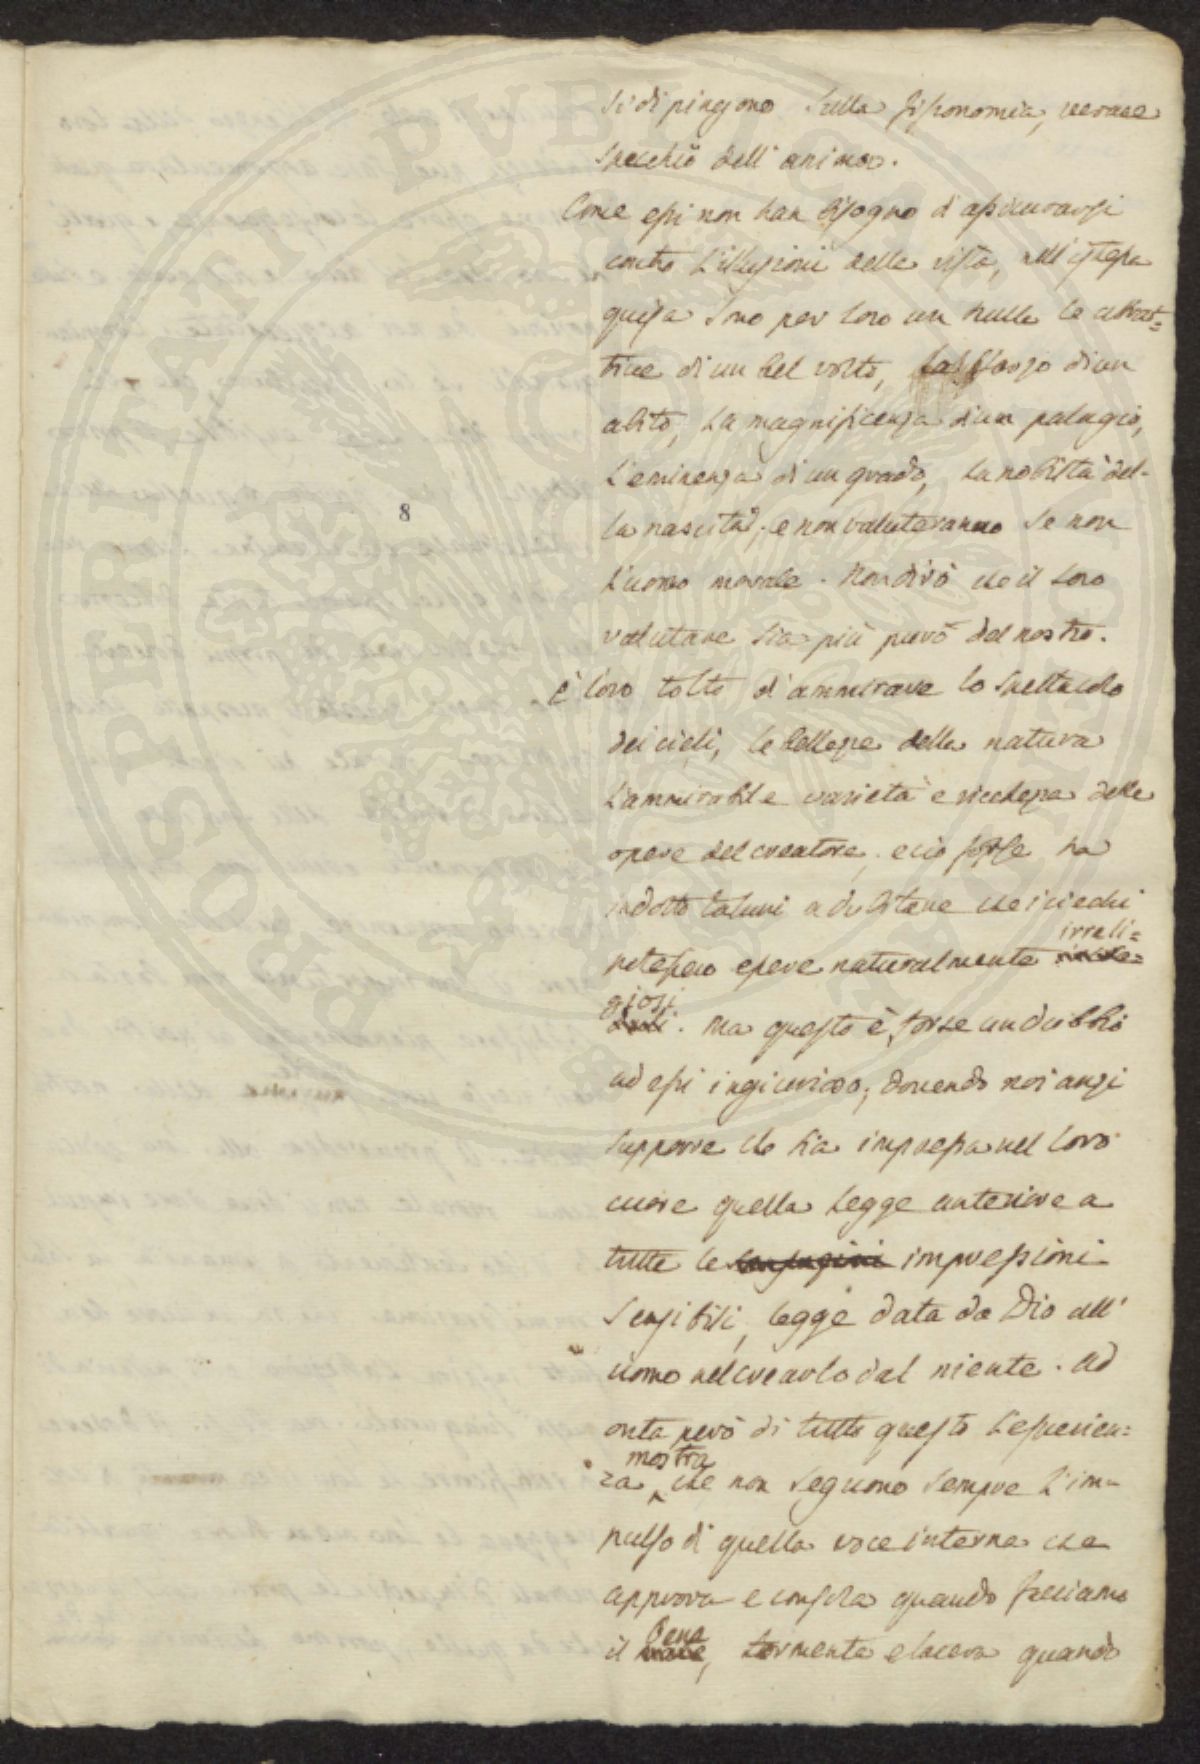 si dipingono sulla fisonomia, verace
specchio dell'anima.
Come essi non han bisogno d'assicurarsi
contro l'illusioni della vista, nell'istessa
guisa sono per loro un nulla le attrat=
tive di un bel volto, lo sfarzo di un
abito, la magnificenza d'un palagio,
l'eminenza di un grado, la nobiltà del-
la nascita; e non valuteranno se non
l'uomo morale. Non dirò che il loro
8
valutare sia più puro del nostro.
È loro tolto d'ammirare lo spettacolo
dei cieli, le bellezze della natura
l'ammirabile varietà e ricchezza delle
opere del creatore; e ciò forse ha
indotto taluni a dubitare che i ciechi
irreli=
potessero essere naturalmente
giosi
. Ma questo è forse un dubbio
ad essi ingiurioso; dovendo noi anzi
supporre che sia impressa nel loro
cuore quella legge anteriore a
tutte le impressioni
sensibili, legge data da Dio all'
uomo nel crearlo dal niente. Ad
onta però di tutto questo l'esperien=
mostra
za che non seguono sempre l'im-
pulso di quella voce interna che
approva e consola quando facciamo
bene
il male, tormenta e lacera quando
PROSPERITATI PUBLICAE